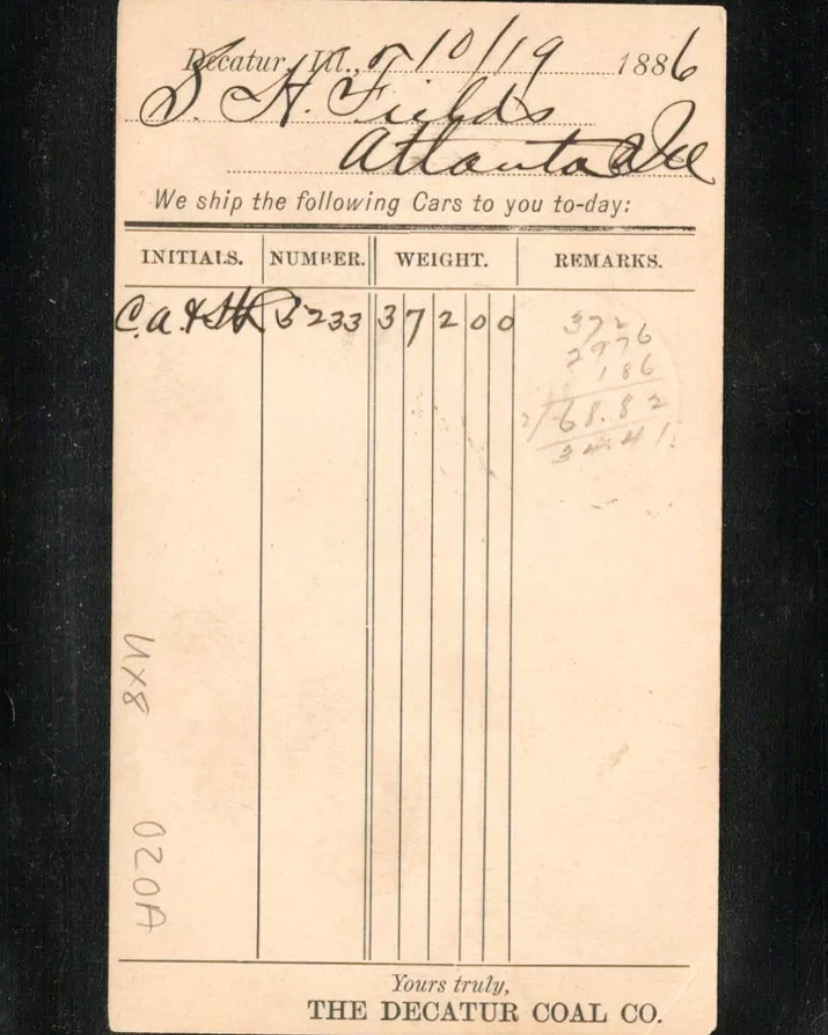 Decatur, Ill., 10/19 1886
S. H. Fields
Atlanta Ill
We ship the following Cars to you to-day:
INITIALS. NUMBER. WEIGHT. REMARKS.
C. A. & St L 5233 37200
372
2976
186
2/68.82
34.41
UX8
020A
Yours truly,
THE DECATUR COAL CO.